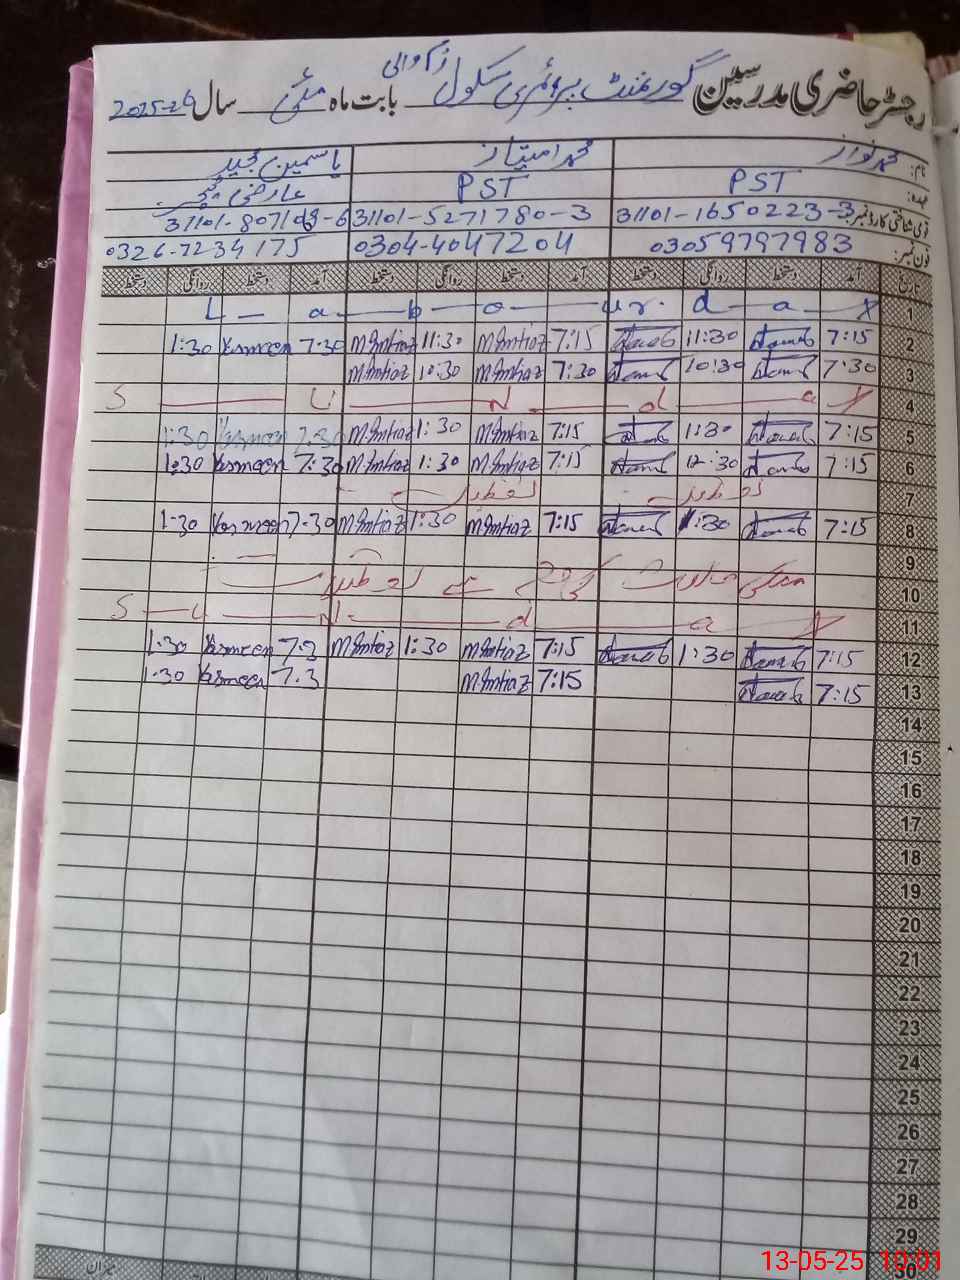 رجسٹر حاضری مدرسین گورنمنٹ پرائمری سکول بابت ماہ مئی سال 2025-26
نام: محمد نواز محمد امتیاز یاسمین مجید
عہدہ: PST PST عارضی ٹیچر
قومی شناختی کارڈ نمبر: 31101-1650223-3 31101-5271780-3
فون نمبر: 03059797983 0304-4047204 0326-7234175
تاریخ آمد دستخط روانگی دستخط آمد دستخط روانگی دستخط آمد دستخط روانگی دستخط
1 L a b o u r d a y
2 7:15 11:30 7:15 M.Imtiaz 11:30 M.Imtiaz 7:30 Yasmeen 1:30
3 7:30 10:30 7:30 M.Imtiaz 10:30 M.Imtiaz
4 S U N d a y
5 7:15 1:30 7:15 M.Imtiaz 1:30 M.Imtiaz 7:30 Yasmeen 1:30
6 7:15 12:30 7:15 M.Imtiaz 1:30 M.Imtiaz 7:30 Yasmeen 1:30
7 تعطیل تعطیل
8 7:15 1:30 7:15 M.Imtiaz 1:30 M.Imtiaz 7:30 Yasmeen 1:30
9
10 ملکی حالات کی وجہ سے تعطیلات
11 S U N d a y
12 7:15 1:30 7:15 M.Imtiaz 1:30 M.Imtiaz 7.3 Yasmeen 1:30
13 7:15 7:15 M.Imtiaz 7.3 Yasmeen 1:30
14
15
16
17
18
19
20
21
22
23
24
25
26
27
28
29
30
میزان
13-05-25 10:01